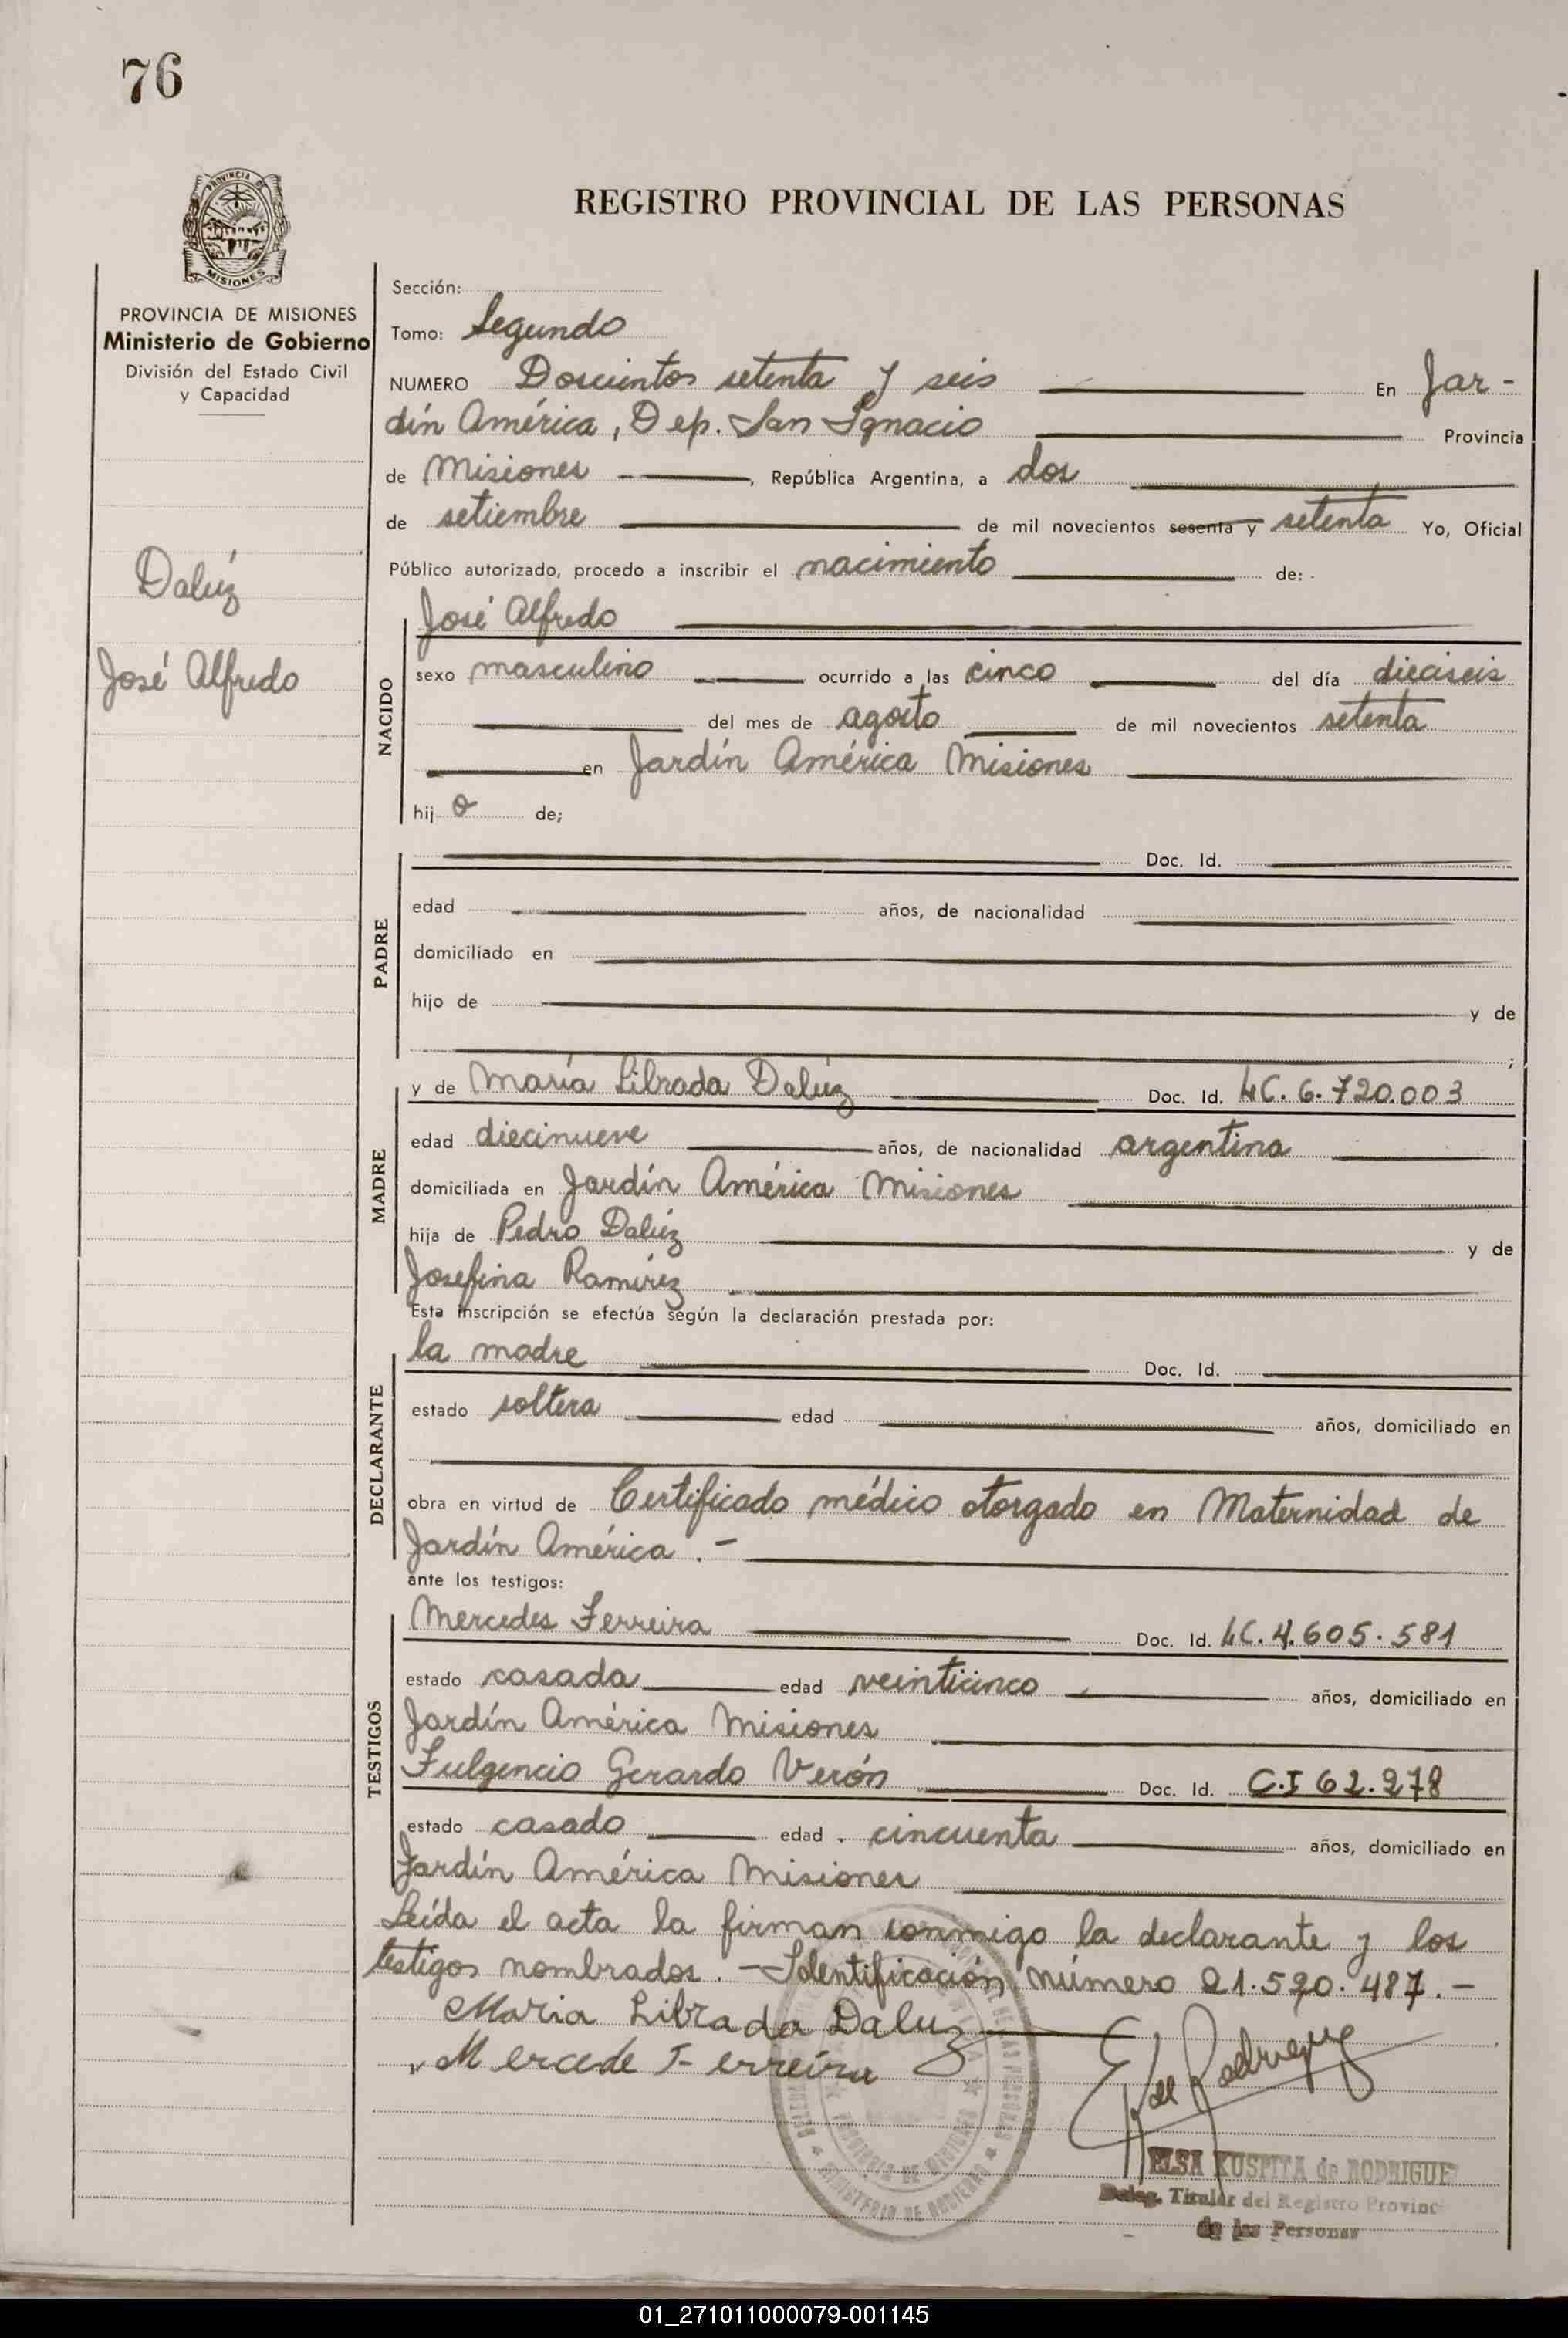 76
PROVINCIA DE
MISIONES
REGISTRO PROVINCIAL DE LAS PERSONAS
PROVINCIA DE MISIONES
Ministerio de Gobierno
División del Estado Civil
y Capacidad
Dalúz
José Alfredo
Sección:
Tomo: Segundo
NUMERO Doscientos setenta y seis En Jar-
dín América, Dep. San Ignacio Provincia
de Misiones, República Argentina, a dos
de setiembre de mil novecientos sesenta y setenta Yo, Oficial
Público autorizado, procedo a inscribir el nacimiento de:
NACIDO
José Alfredo
sexo masculino ocurrido a las cinco del día dieciseis
del mes de agosto de mil novecientos setenta
en Jardín América Misiones
hij o de;
PADRE
Doc. Id.
edad años, de nacionalidad
domiciliado en
hijo de y de
;
MADRE
y de María Librada Dalúz Doc. Id. LC. 6.720.003
edad diecinueve años, de nacionalidad argentina
domiciliada en Jardín América Misiones
hija de Pedro Dalúz y de
Josefina Ramírez
Esta inscripción se efectúa según la declaración prestada por:
DECLARANTE
la madre Doc. Id.
estado soltera edad años, domiciliado en
obra en virtud de Certificado médico otorgado en Maternidad de
Jardín América.-
ante los testigos:
TESTIGOS
Mercedes Ferreira Doc. Id. LC. 4.605.581
estado casada edad veinticinco años, domiciliado en
Jardín América Misiones
Fulgencio Gerardo Verón Doc. Id. C.I 62.278
estado casado edad cincuenta años, domiciliado en
Jardín América Misiones
Leída el acta la firman conmigo la declarante y los
testigos nombrados.- Identificación número 21.520.487.-
Maria Librada Daluz
Mercede Ferreira
ELSA KUSPITA de RODRIGUEZ
Deleg. Titular del Registro Provinc
de las Personas
PROVINCIA DE MISIONES
MINISTERIO DE
01_271011000079-001145